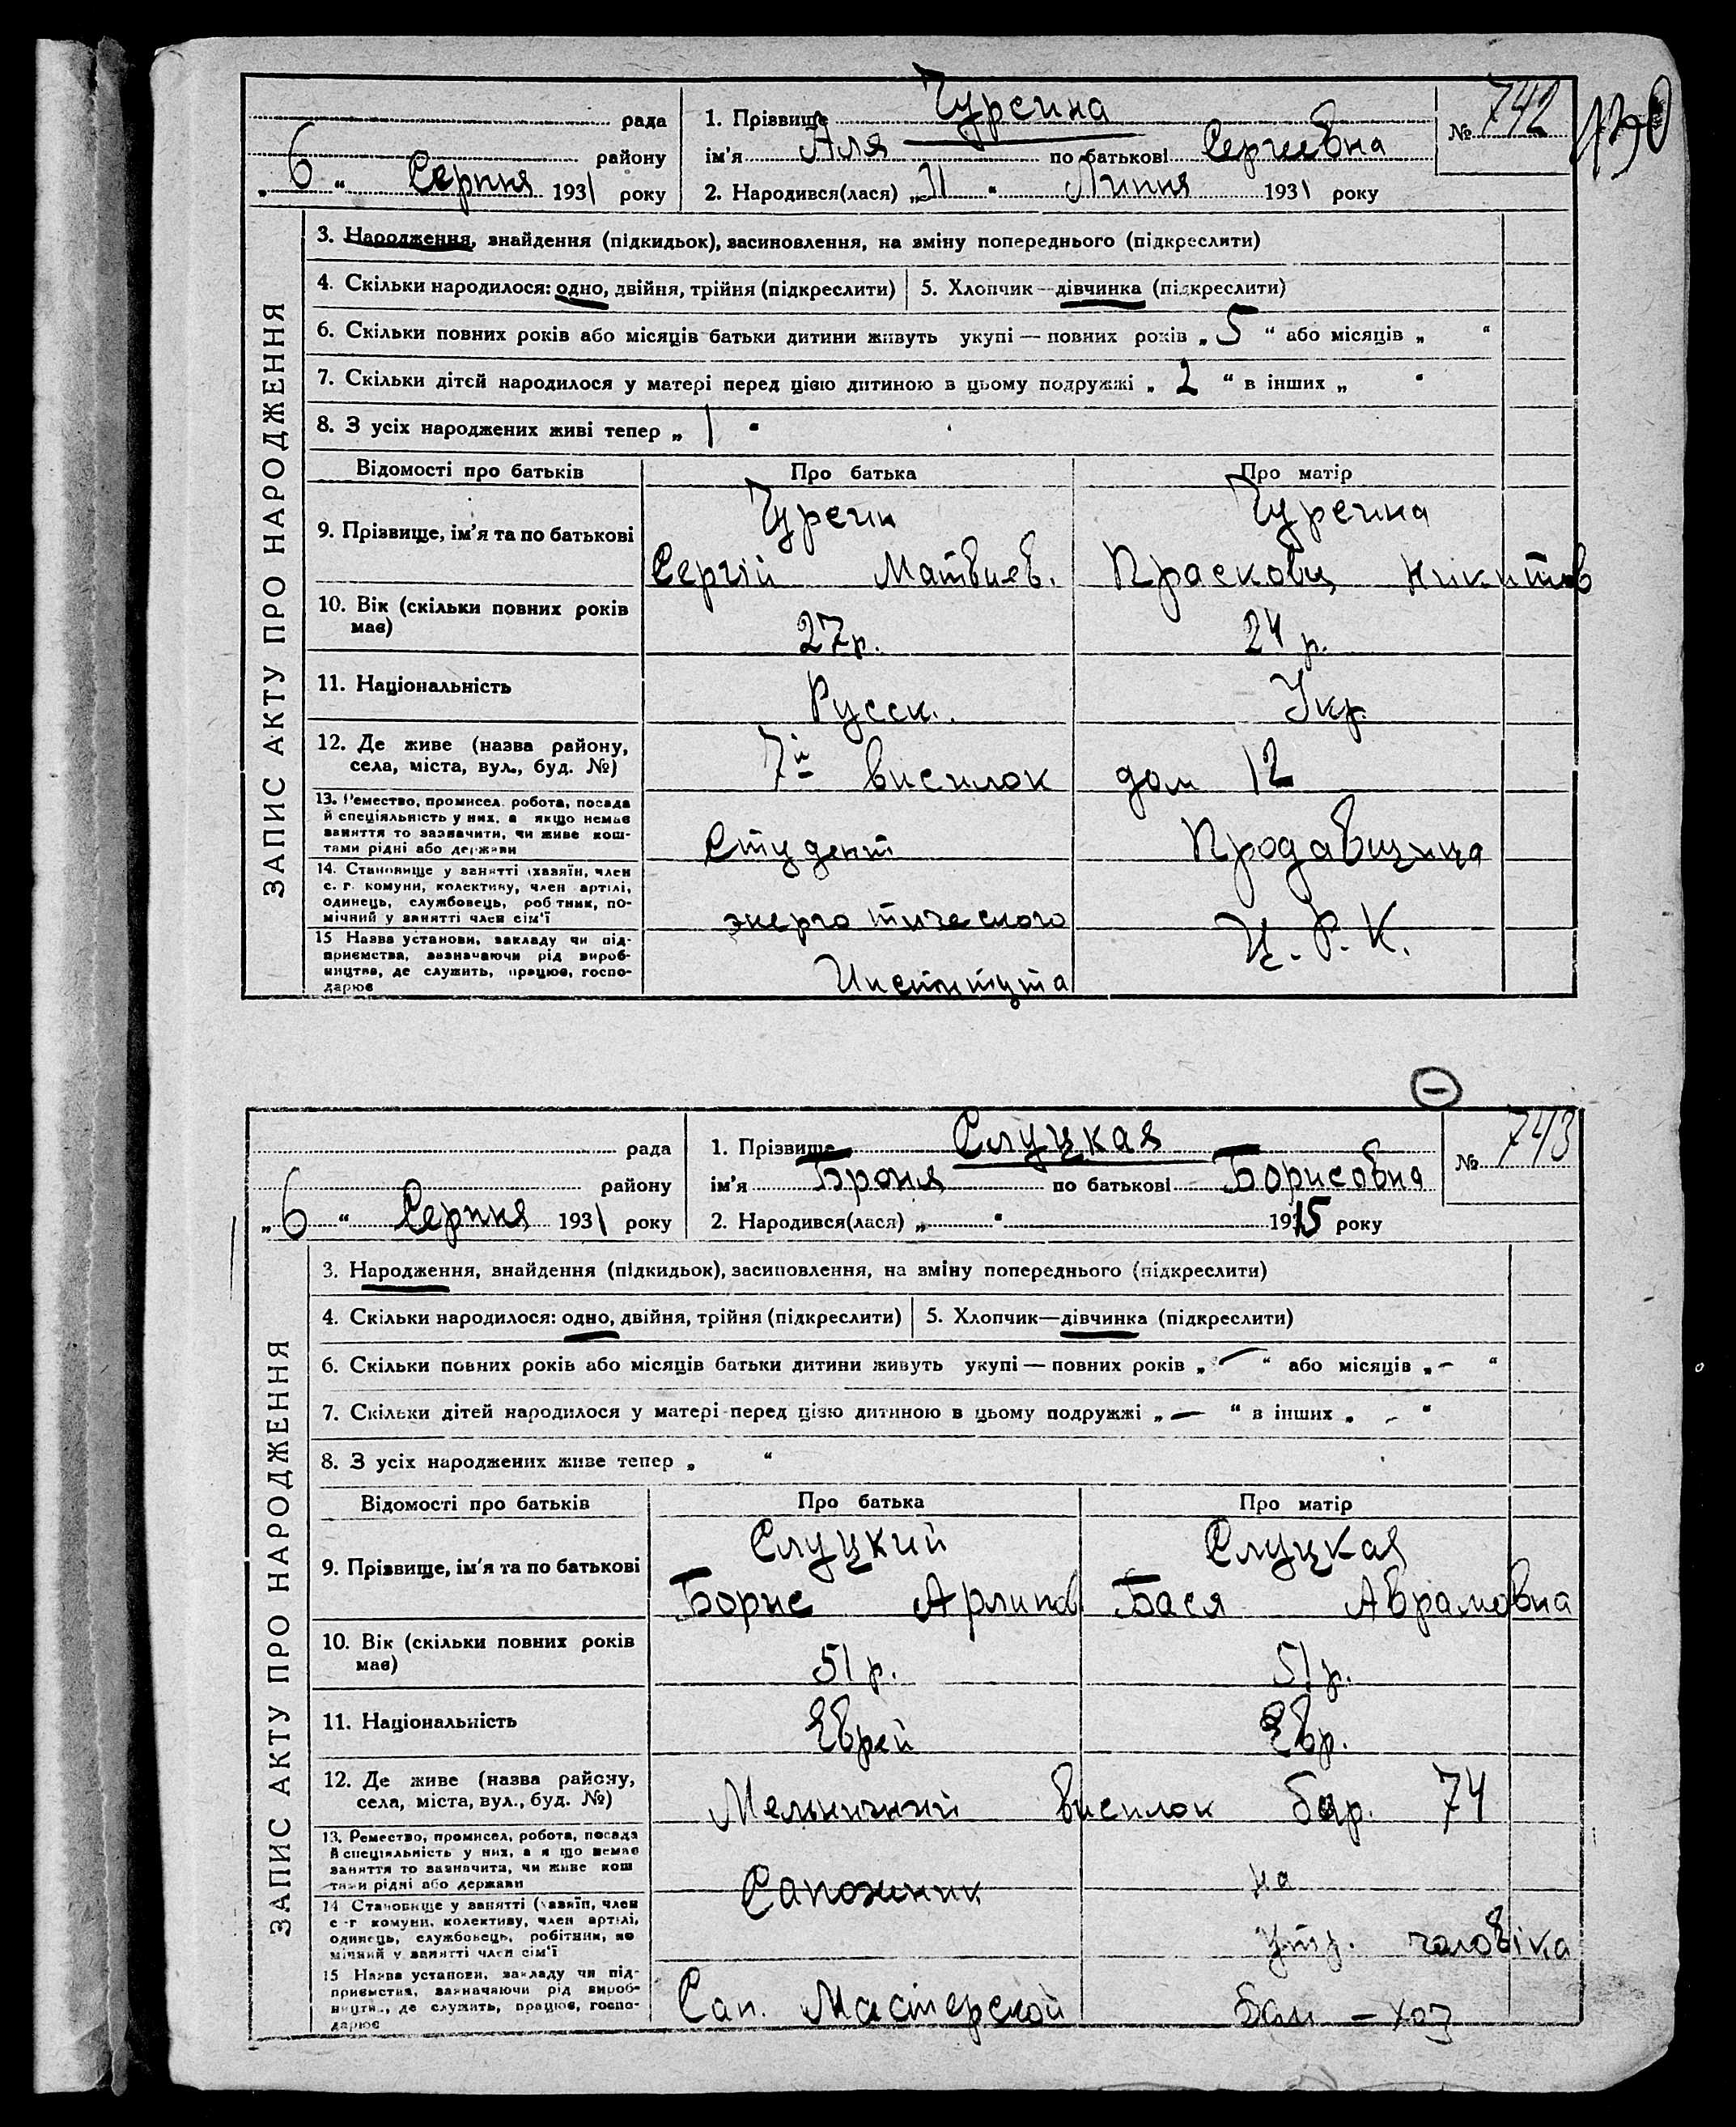 рада
1. Прізвище Чурсина
№ 742
району
ім'я Аля по батькові Сергеевна
„6“ Серпня 1931 року
2. Народився(лася) „31“ Липня 1931 року
ЗАПИС АКТУ ПРО НАРОДЖЕННЯ
3. Народження, знайдення (підкидьок), засиновлення, на зміну попереднього (підкреслити)
4. Скільки народилося: одно, двійня, трійня (підкреслити) 5. Хлопчик—дівчинка (підкреслити)
6. Скільки повних років або місяців батьки дитини живуть укупі — повних років „5“ або місяців „ “
7. Скільки дітей народилося у матері перед цією дитиною в цьому подружжі „2“ в інших „ “
8. З усіх народжених живі тепер „1“
Відомості про батьків Про батька Про матір
9. Прізвище, ім'я та по батькові
Чурсин Чурсина
Сергій Матвиев. Прасковя Никитов
10. Вік (скільки повних років має)
27р. 24 р.
11. Національність Русск. Укр.
12. Де живе (назва району, села, міста, вул., буд. №)
7й висилок дом 12
13. Ремество, промисел, робота, посада
й спеціяльність у них, а якщо немає
заняття то зазначити, чи живе кош-
тами рідні або держави
Студент Продавщица
14. Становище у занятті (хазяїн, член
с. г. комуни, колективу, член артілі,
одинець, службовець, робітник, по-
мічний у занятті член сім'ї
энерго тического Ц. Р. К.
15 Назва установи, закладу чи під-
приємства, зазначаючи рід вироб-
ництва, де служить, працює, госпо-
дарює
Института
рада
1. Прізвище Слуцкая
№ 743
району
ім'я Броня по батькові Борисовна
„6“ Серпня 1931 року
2. Народився(лася) „ “ 1915 року
ЗАПИС АКТУ ПРО НАРОДЖЕННЯ
3. Народження, знайдення (підкидьок), засиновлення, на зміну попереднього (підкреслити)
4. Скільки народилося: одно, двійня, трійня (підкреслити) 5. Хлопчик—дівчинка (підкреслити)
6. Скільки повних років або місяців батьки дитини живуть укупі — повних років „—“ або місяців „—“
7. Скільки дітей народилося у матері перед цією дитиною в цьому подружжі „—“ в інших „—“
8. З усіх народжених живе тепер „ “
Відомості про батьків Про батька Про матір
9. Прізвище, ім'я та по батькові
Слуцкий Слуцкая
Борис Бася Аврамовна
10. Вік (скільки повних років має)
51р. 51р.
11. Національність Еврей Евр.
12. Де живе (назва району, села, міста, вул., буд. №)
Мельничний висилок бар. 74
13. Ремество, промисел, робота, посада
й спеціяльність у них, а якщо немає
заняття то зазначити, чи живе кош
тами рідні або держави
Сапожник на
14 Становище у занятті (хазяїн, член
с-г комуни, колективу, член артілі,
одинець, службовець, робітник, по
мічний у занятті член сім'ї
утр. чоловіка
15 Назва установи, закладу чи під-
приємства, зазначаючи рід вироб-
ництва, де служить, працює, госпо-
дарює
Сап. Мастерской хоз